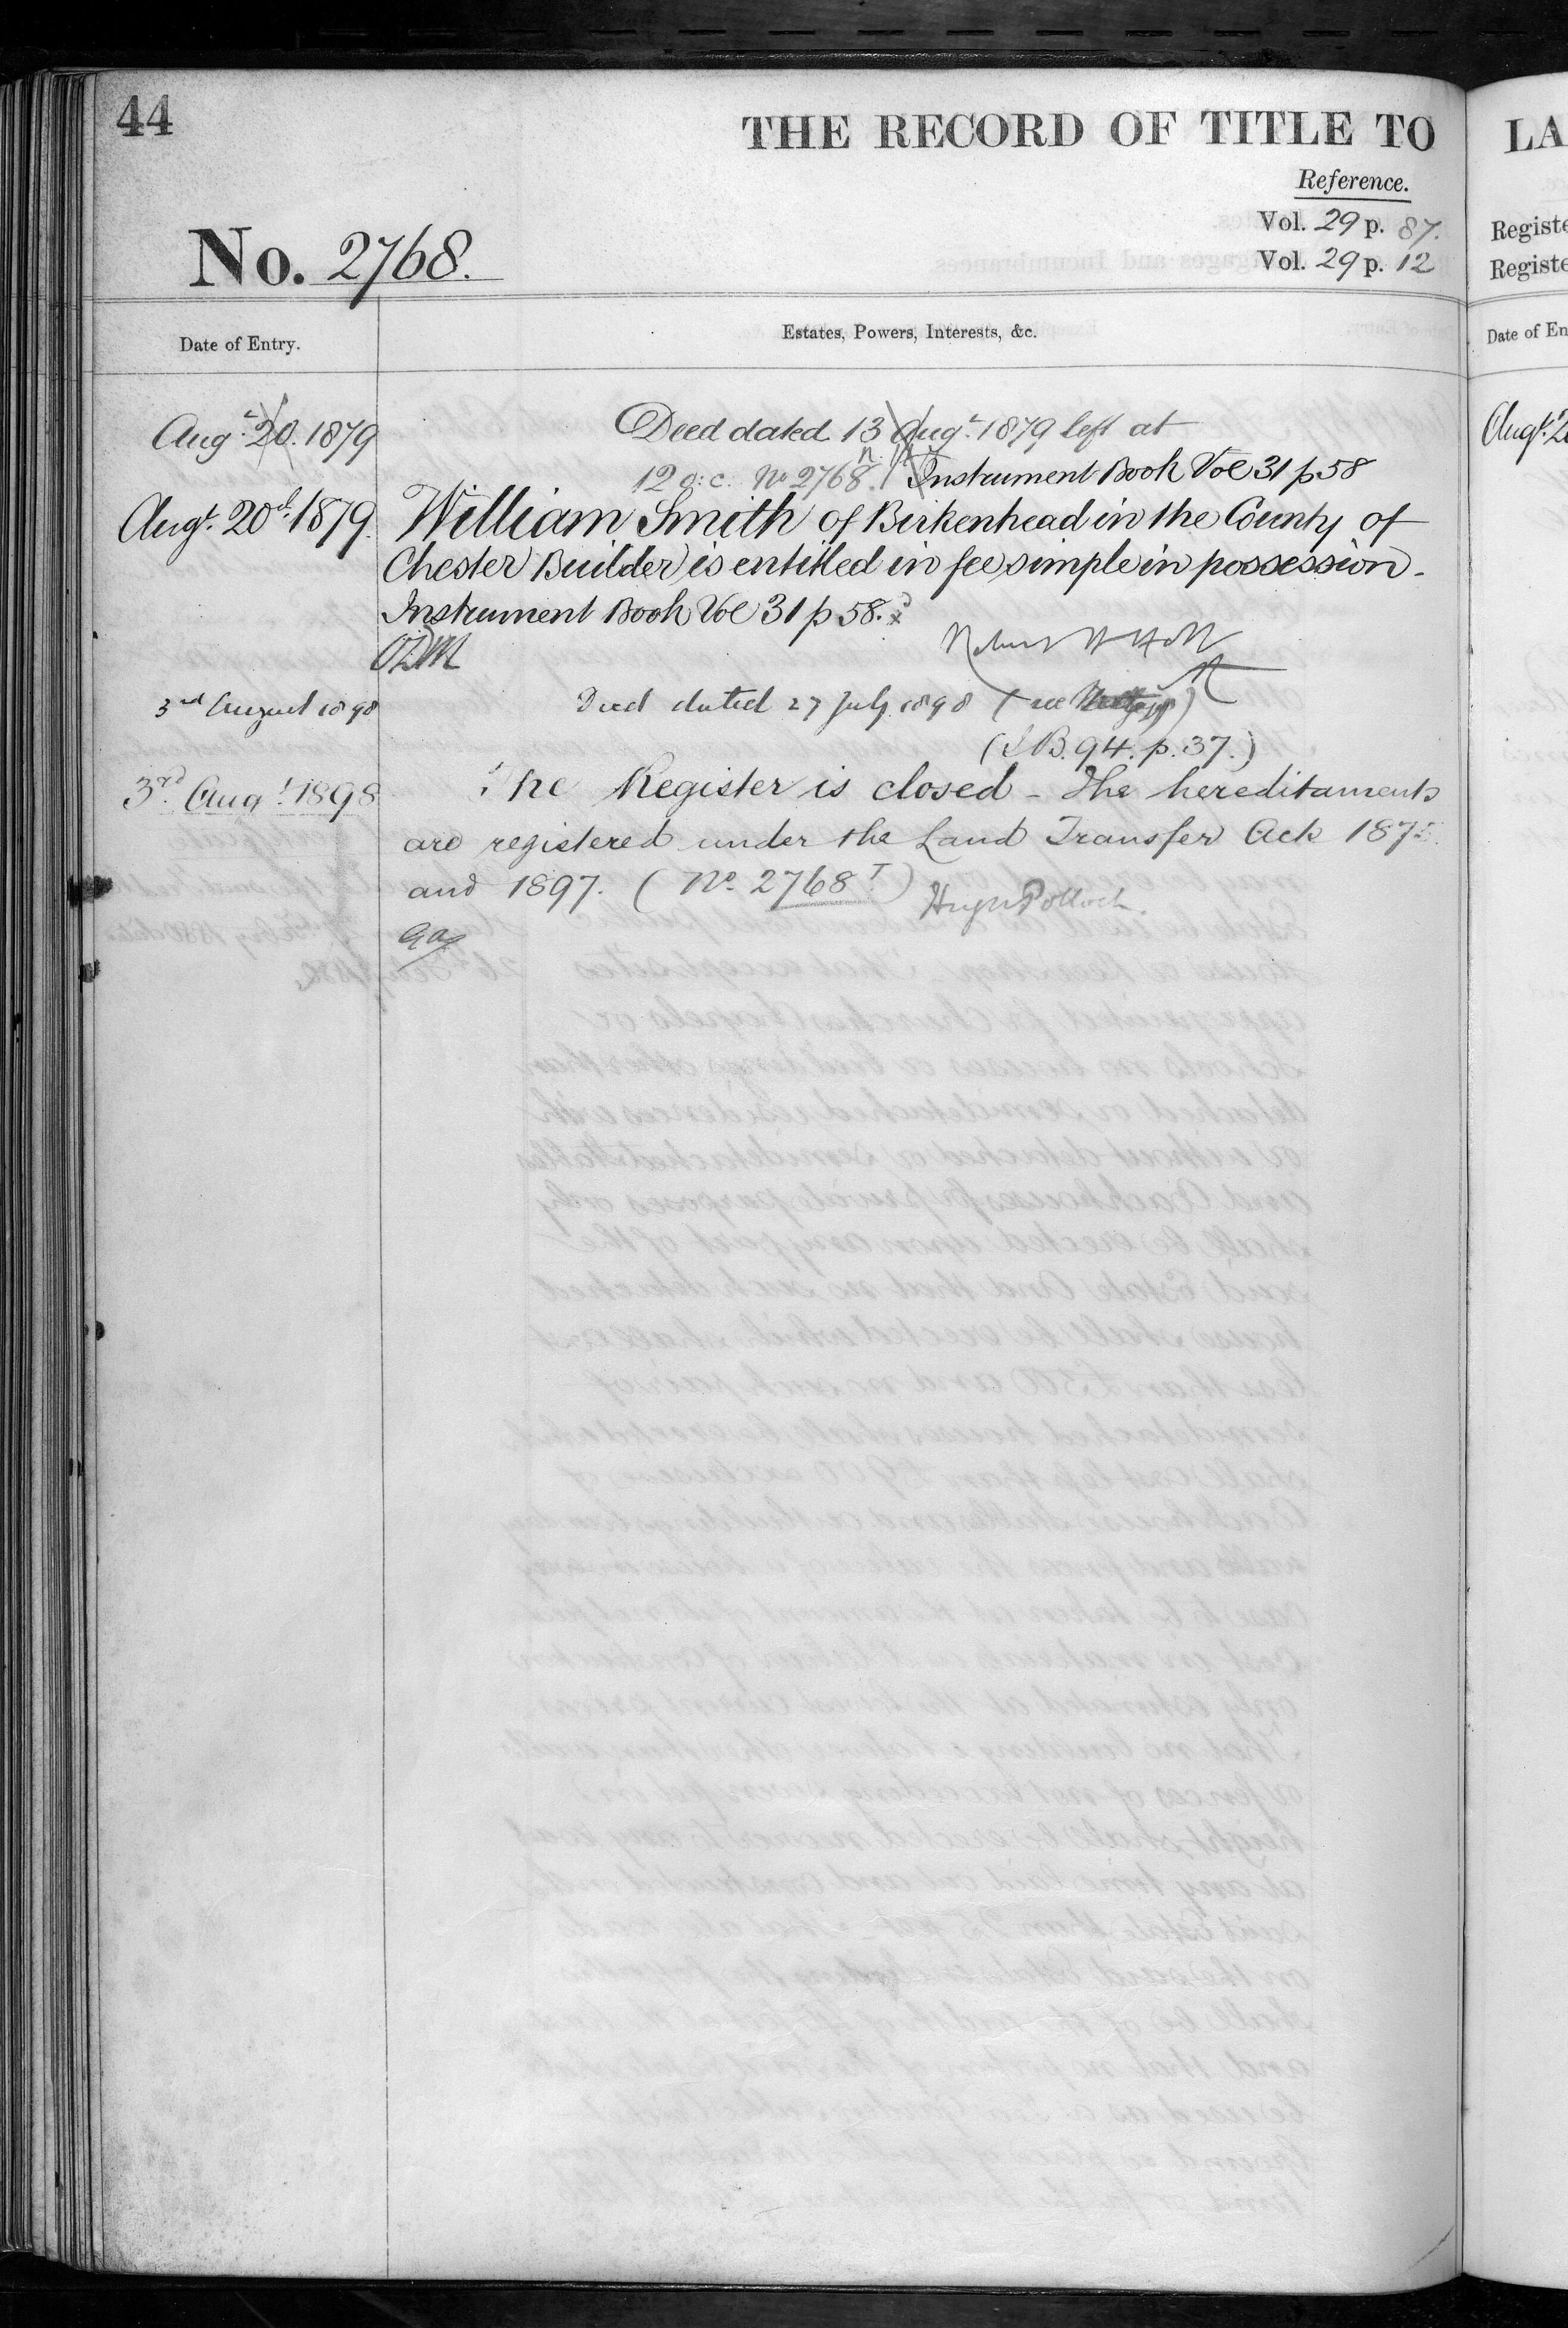 44
THE RECORD OF TITLE TO
LA
Reference.
Vol. 29 p. 87.
Vol. 29 p. 12
Registe
Registe
No. 2768.
Date of Entry.
Estates, Powers, Interests, &c.
Date of En
Augt. 20. 1879
Deed dated 13 Augt. 1879 left at
12 o:c. No 2768. Instrument Book Vol 31 p 58
Augt. 2
Augt. 20th 1879.
William Smith of Birkenhead in the County of
Chester Builder is entitled in fee simple in possession.
Instrument Book Vol 31 p 58.
3rd August 1898
Deed dated 27 July 1898 (see
(I.B. 94. p. 37.)
3rd. Augt. 1898
The Register is closed - The hereditaments
are registered under the Land Transfer Acts 1875
and 1897. (No. 2768 I) Hugh Pollock.